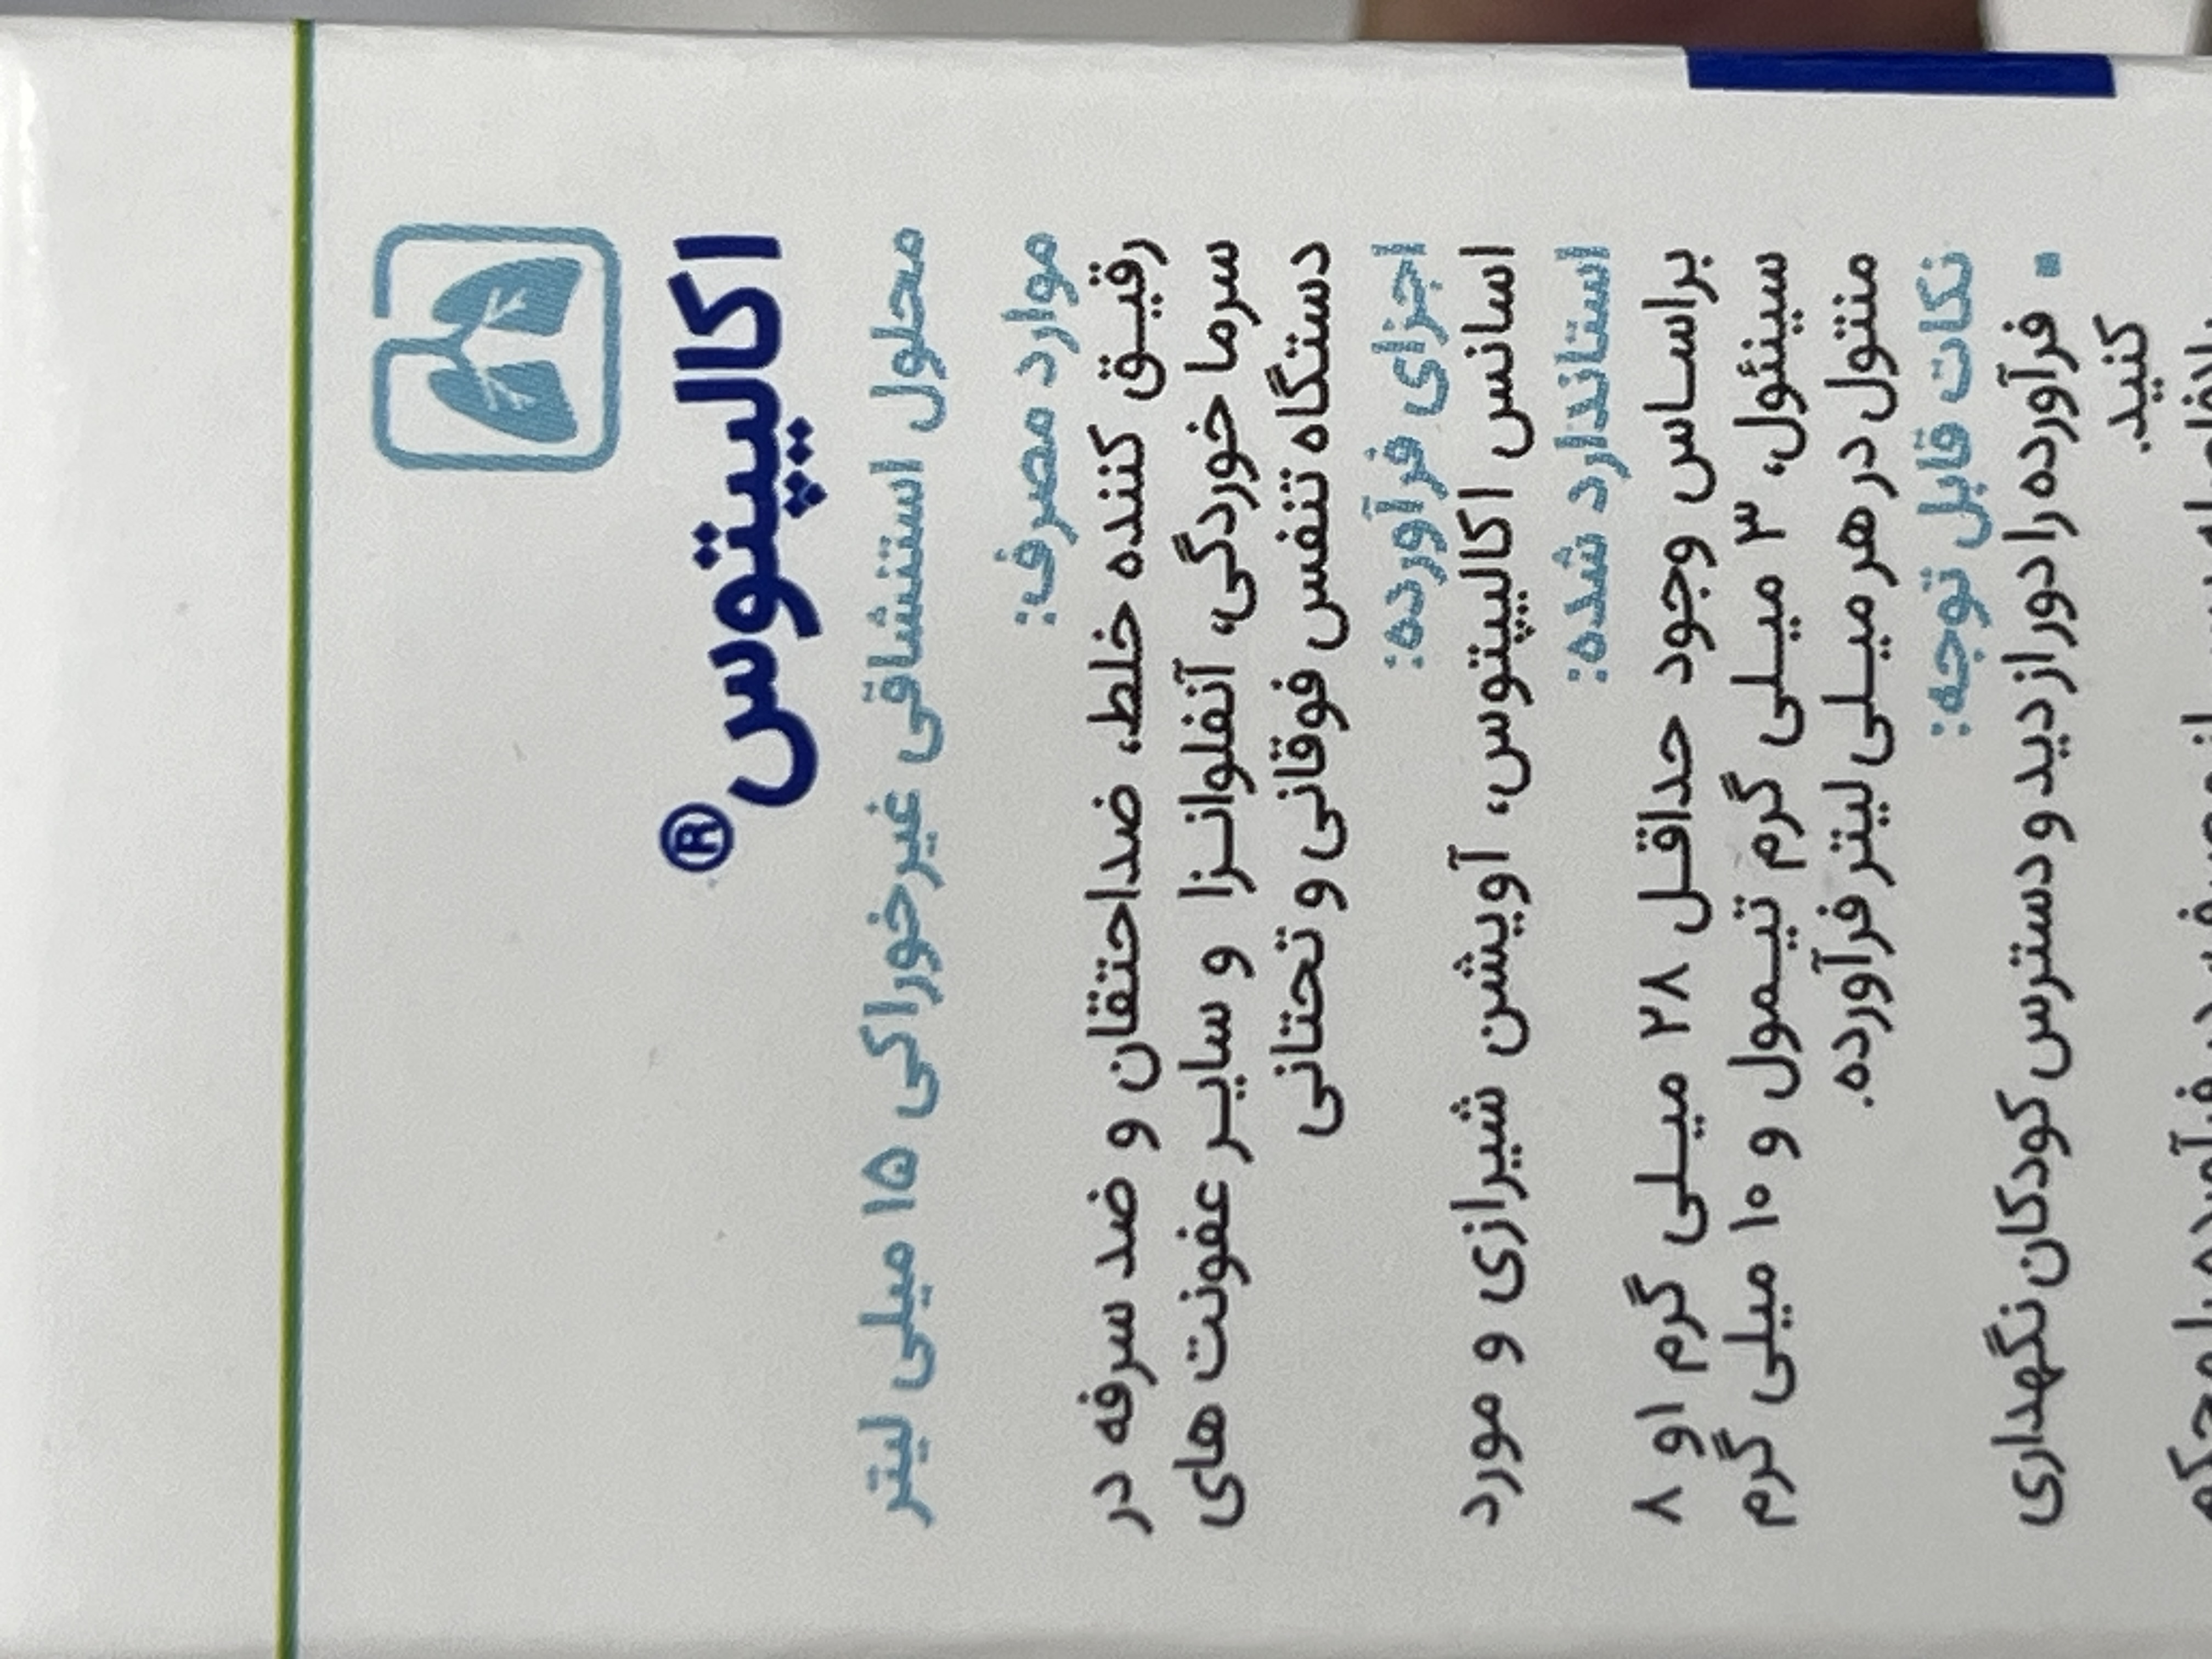 اکالیپتوس®
محلول استنشاقی غیرخوراکی ۱۵ میلی لیتر
موارد مصرف:
رقیق کننده خلط، ضداحتقان و ضد سرفه در
سرما خوردگی، آنفلوانزا و سایر عفونت های
دستگاه تنفس فوقانی و تحتانی
اجزای فرآورده:
اسانس اکالیپتوس، آویشن شیرازی و مورد
استاندارد شده:
براساس وجود حداقل ۲۸ میلی گرم ۱و ۸
سینئول، ۳ میلی گرم تیمول و ۱۰ میلی گرم
منتول در هر میلی لیتر فرآورده.
نکات قابل توجه:
▪ فرآورده را دور از دید و دسترس کودکان نگهداری
کنید.